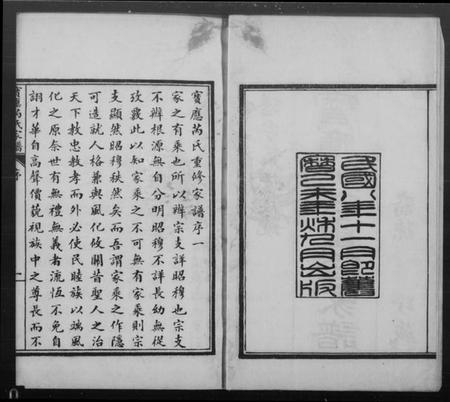 民國八年十一月即舊
曆己未年秋九月出版
寶應芮氏重修家譜序一
家之有乘也所以辨宗支詳昭穆也宗支
不辨根源無自分明昭穆不詳長幼無從
攷覈此以知家乘之不可無有家乘則宗
支顯然昭穆秩然矣而吾謂家乘之作隱
可造就人格兼與風化攸關昔聖人之治
天下教忠教孝而外必使民睦族以端風
化之原奈世有無禮無義者流恆不免自
詡才華自高聲價藐視族中之尊長而不
寶應芮氏家譜
序
一